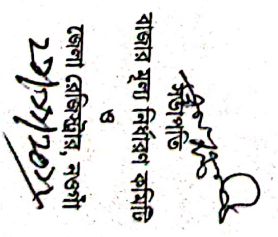 সভাপতি
বাজার মূল্য নির্ধারণ কমিটি
ও
জেলা রেজিস্ট্রার, নওগাঁ